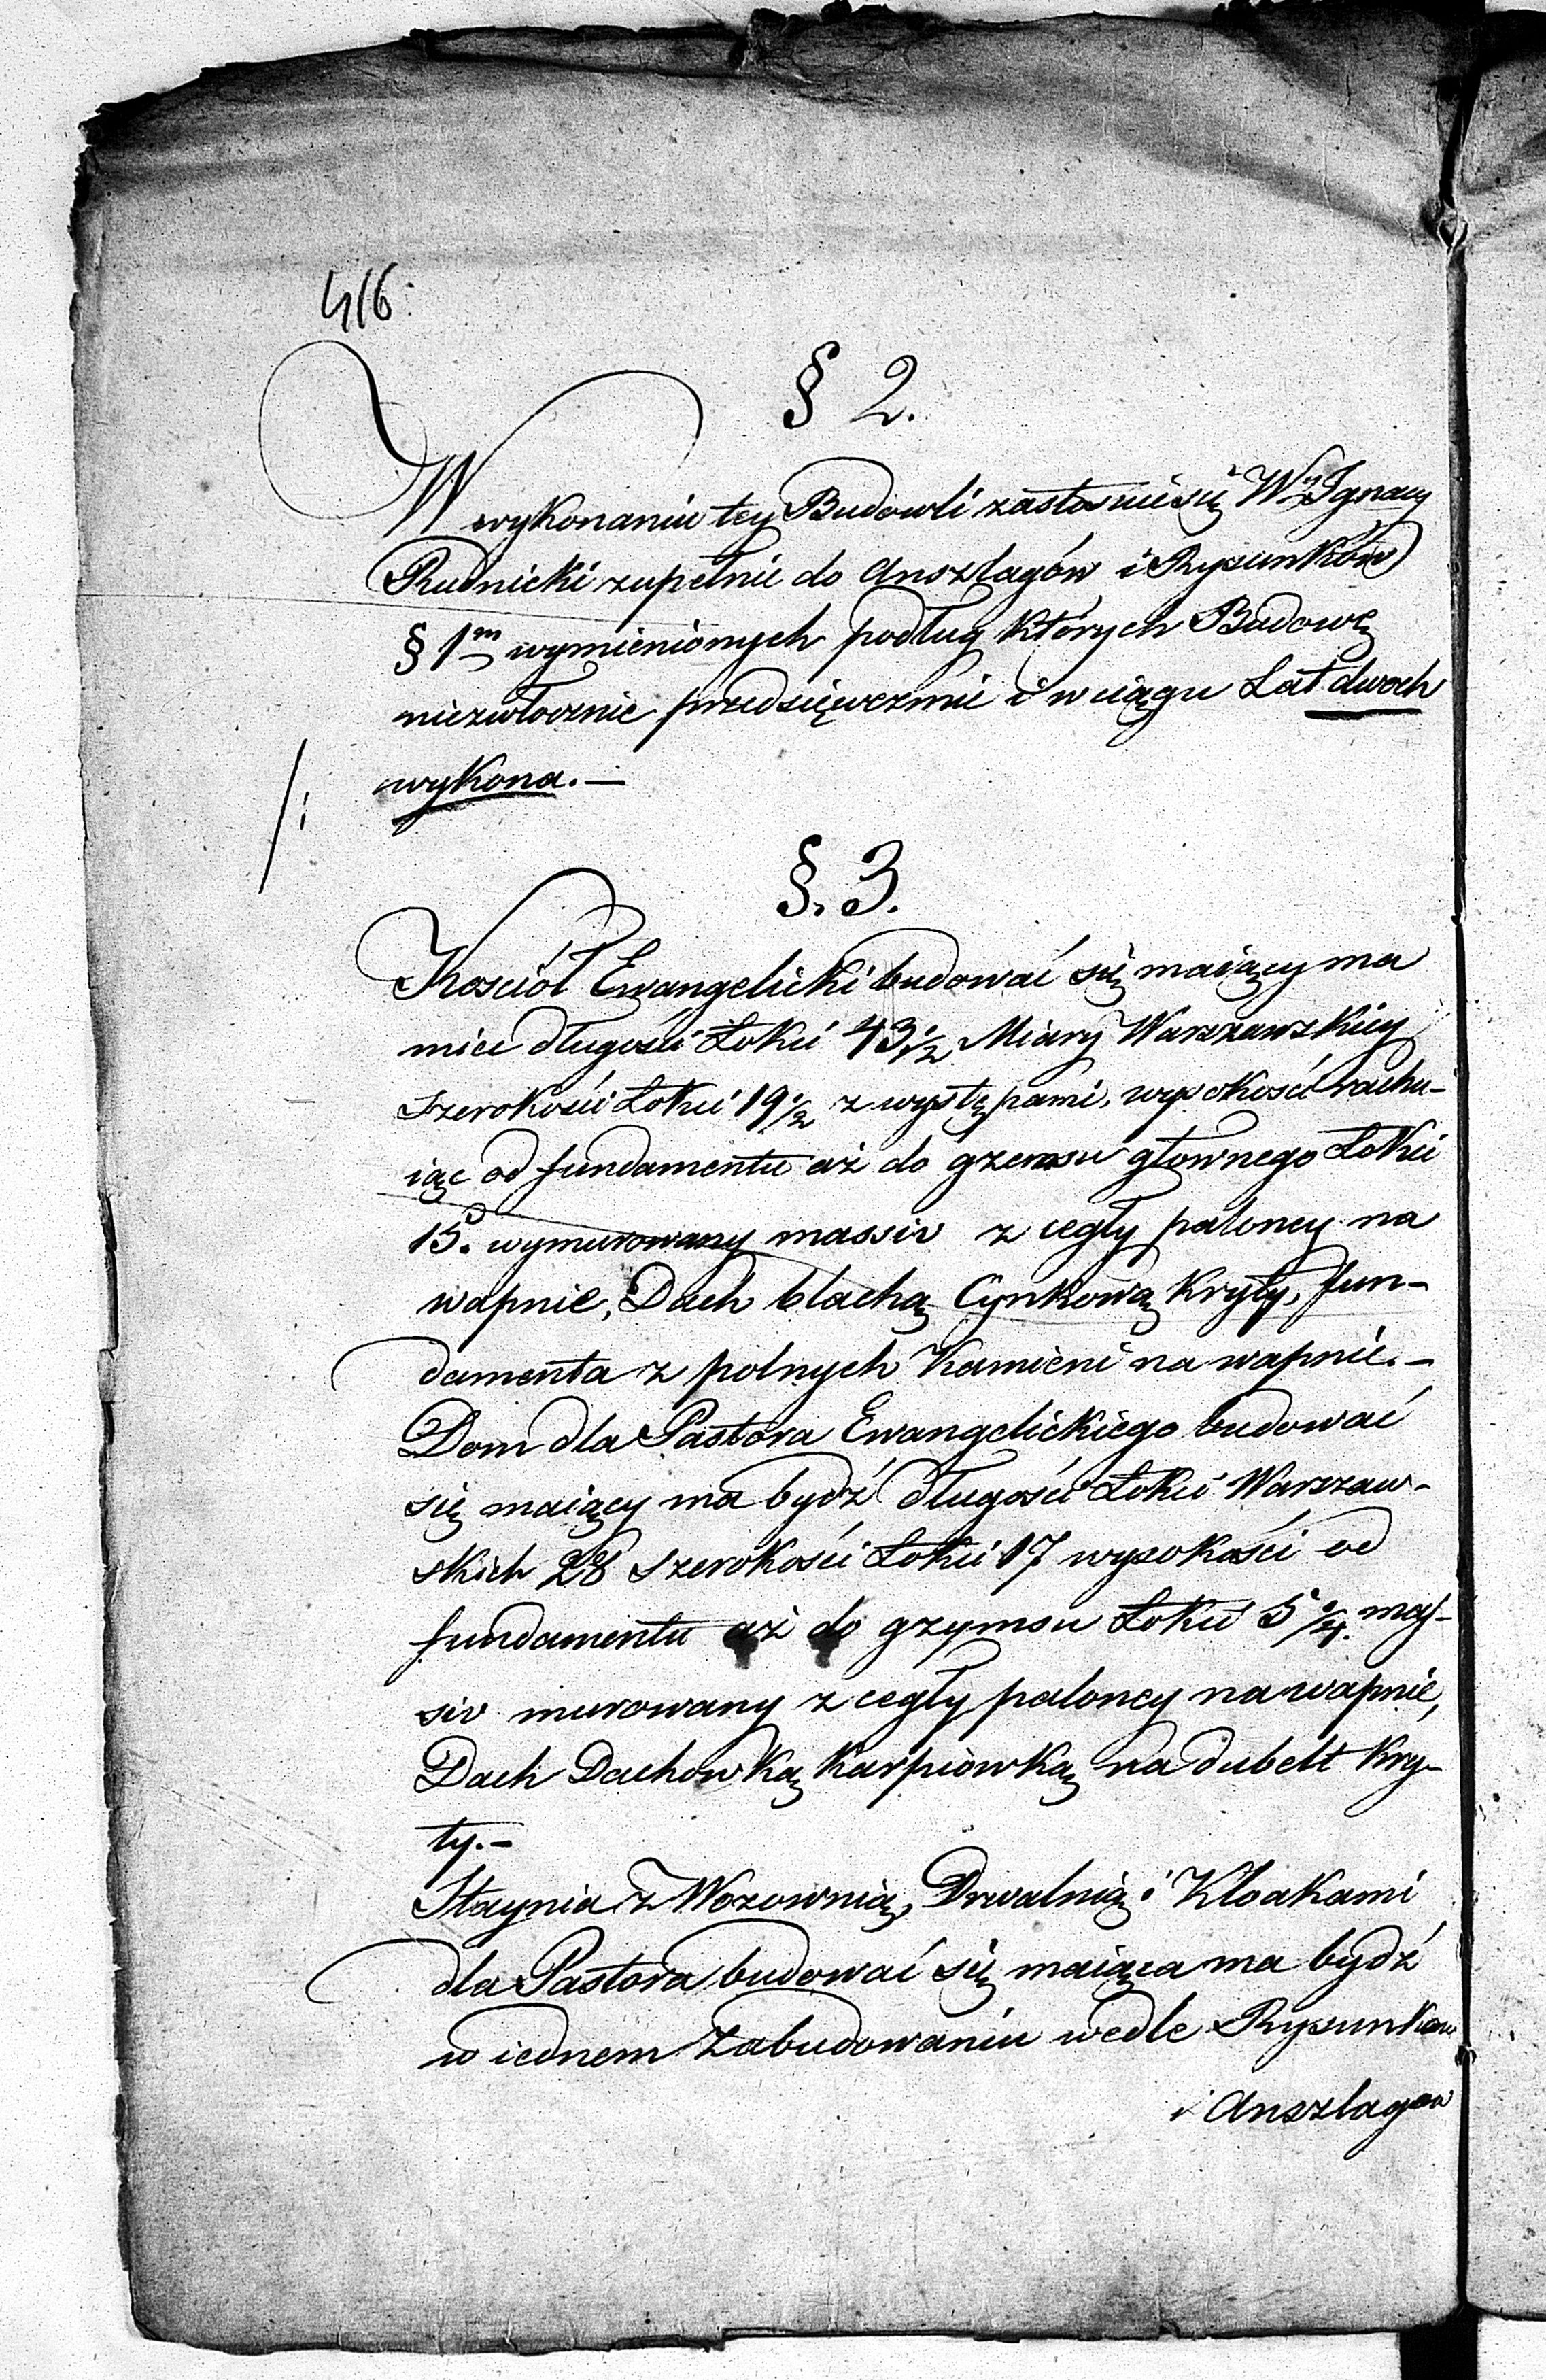 416.
§ 2.
W wykonaniu tey Budowli zastosuie się Wny Ignacy
Rudnicki zupełnie do Anszlagów i Rysunków
§ 1m wymienionych podług których Budowę
niezwłocznie przedsięweźmie i w ciągu Lat dwoch
wykona. —
/:
§. 3.
Kościół Ewangelicki budować się maiący ma
mieć długości Łokci 43 1/2 Miary Warszawskiey
szerokości Łokci 19 1/2 z występami, wysokości rachu-
iąc od fundamentu aż do gzemsu głownego Łokci
15. wymurowany massiv z cegły paloney na
wapnie, Dach blachą Cynkową kryty, fun-
damenta z polnych Kamieni na wapnie. —
Dom dla Pastora Ewangelickiego budować
się maiący ma bydź długości Łokci Warszaw-
skich 28 szerokości Łokci 17 wysokości od
fundamentu aż do gzymsu Łokci 5 1/4. mas-
siv murowany z cegły paloney na wapnie,
Dach Dachowką Karpiowką na dubelt kry-
ty. —
Staynia z Wozownią, Drwalnią i Kloakami
dla Pastora budować się maiąca ma bydź
w iednem Zabudowaniu wedle Rysunkow
i Anszlagow